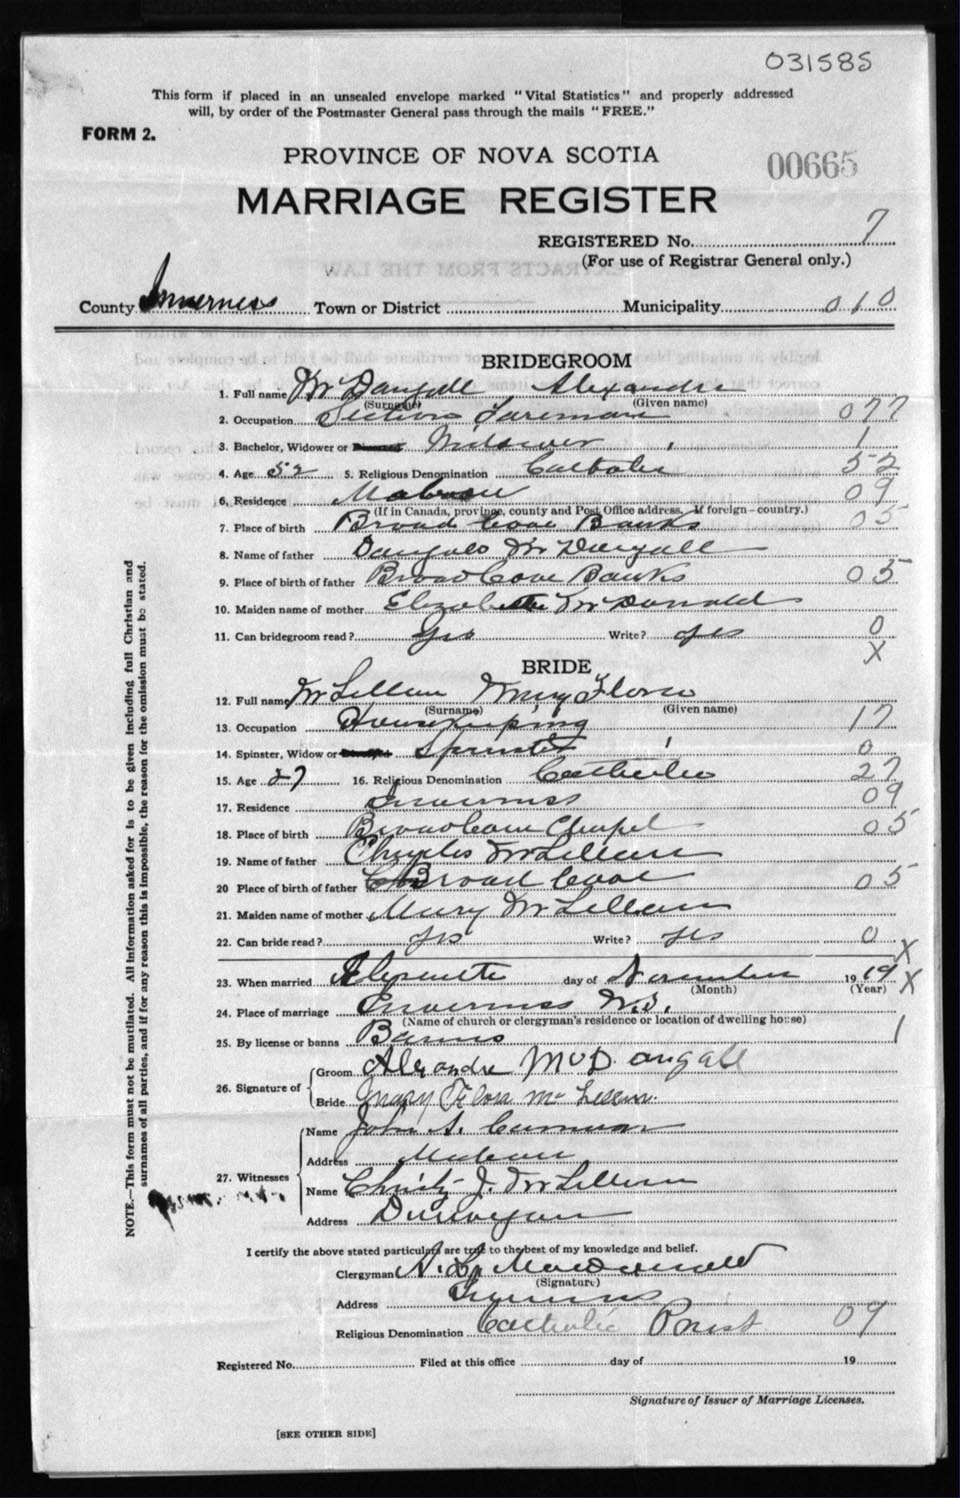 031585
This form if placed in an unsealed envelope marked "Vital Statistics" and properly addressed
will, by order of the Postmaster General pass through the mails "FREE."
FORM 2.
PROVINCE OF NOVA SCOTIA
00665
MARRIAGE REGISTER
REGISTERED No. 7
(For use of Registrar General only.)
County Inverness Town or District Municipality 010
BRIDEGROOM
1. Full name McDougall Alexandre
(Surname) (Given name)
2. Occupation Section Foreman 077
3. Bachelor, Widower or Divorced Widower 1
4. Age 52 5. Religious Denomination Catholic 52
6. Residence Mabou 09
(If in Canada, province, county and Post Office address, If foreign—country.)
7. Place of birth Broad Cove Banks 05
8. Name of father McDougall
9. Place of birth of father Broad Cove Banks 05
10. Maiden name of mother Elizabeth McDonald
11. Can bridegroom read? Yes Write? yes 0
X
BRIDE
12. Full name McLellan Mary Flora
(Surname) (Given name)
13. Occupation Housekeeping 17
14. Spinster, Widow or Spinster 1 0
15. Age 27 16. Religious Denomination Catholic 27
17. Residence Inverness 09
18. Place of birth Broad Cove Chapel 05
19. Name of father Charles McLellan
20 Place of birth of father Broad Cove 05
21. Maiden name of mother Mary McLellan
22. Can bride read? yes Write? yes 0
X
23. When married day of November 1919 X
(Month) (Year)
24. Place of marriage Inverness N.S.
(Name of church or clergyman's residence or location of dwelling house)
25. By license or banns Banns 1
26. Signature of
Groom Alexandre McDougall
Bride Mary Flora McLellan
27. Witnesses
Name John A.
Address Mabou
Name Christy J. McLellan
Address Dunvegan
I certify the above stated particulars are true to the best of my knowledge and belief.
Clergyman A. L. MacDonald
(Signature)
Address Inverness
Religious Denomination Catholic Priest 09
Registered No. Filed at this office day of 19
Signature of Issuer of Marriage Licenses.
[SEE OTHER SIDE]
NOTE.—This form must not be mutilated. All information asked for is to be given including full Christian and
surnames of all parties, and if for any reason this is impossible, the reason for the omission must be stated.